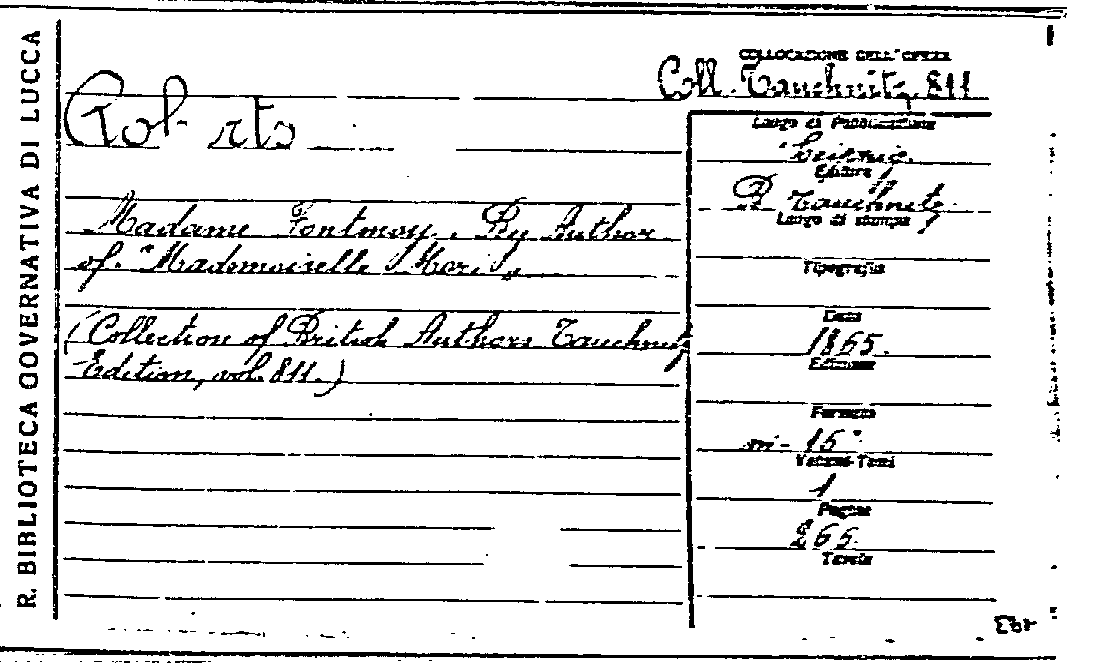 R. BIBLIOTECA GOVERNATIVA DI LUCCA
COLLOCAZIONE DELL'OPERA
Coll. Tauchnitz, 811
Luogo di Pubblicazione
Leipzig.
Editore
Tauchnitz
Luogo di stampa
Tipografia
Data
1865.
Edizione
Formato
in-16°
Volumi-Tomi
1
Pagine
265.
Tavole
Madame Fontenoy. By Author
of "Mademoiselle Mori"
(Collection of British Authors Tauchnitz
Edition, vol. 811.)